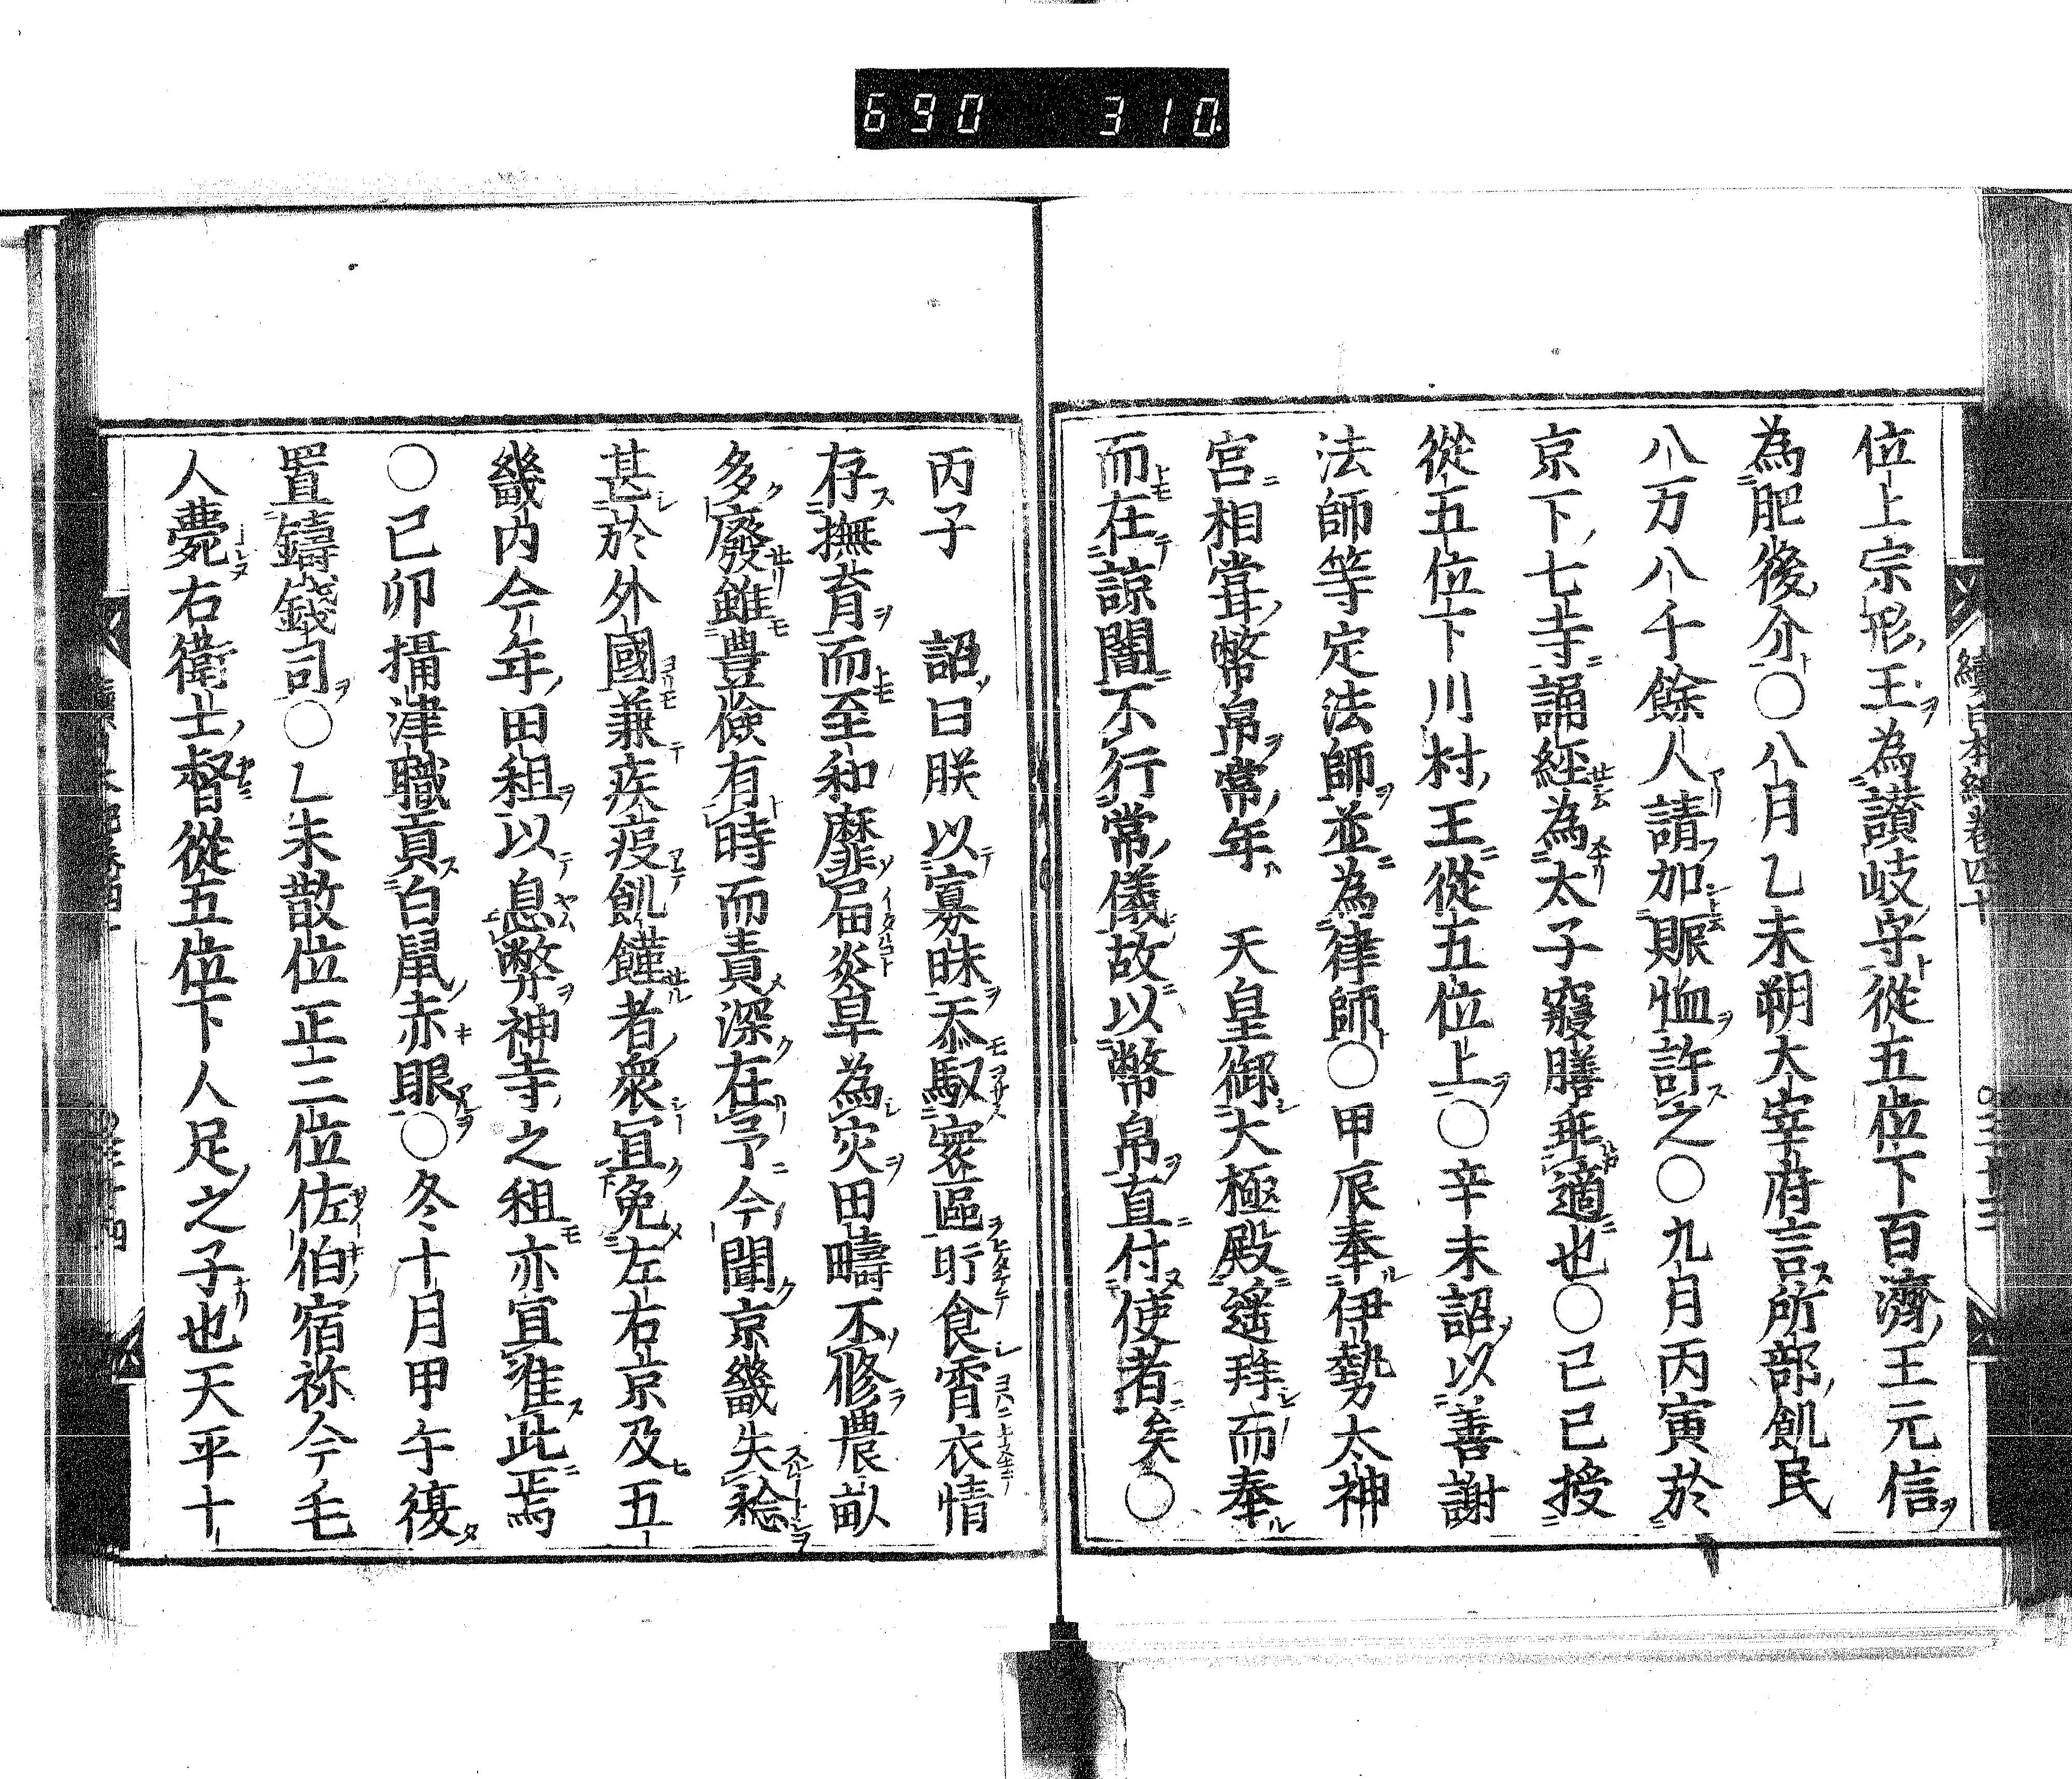 690 310
位上宗形王為讃岐守從五位下百濟王元信
為肥後介〇八月乙未朔大宰府言所部飢民
八万八千餘人請加賑恤許之〇九月丙寅於
京下七寺誦經為太子寢膳乖適也〇己巳授
從五位下川村王從五位上〇辛未詔以善謝
法師等定法師並為律師〇甲辰奉伊勢太神
宮相甞幣帛常年 天皇御大極殿遥拜而奉
而在諒闇不行常儀故以幣帛直付使者矣〇
丙子 詔曰朕以寡昧忝馭寰區旰食霄衣情
存撫育而至和靡届炎旱為灾田疇不修農畝
多廢雖豊儉有時而責深在予今聞京畿失稔
甚於外國兼疾疫飢饉者衆冝免左右京及五
畿内今年田租以息弊神寺之租亦冝准此焉
〇己卯攝津職貢白鼠赤眼〇冬十月甲午復
置鑄錢司〇乙未散位正三位佐伯宿祢今毛
人薨右衛士督從五位下人足之子也天平十